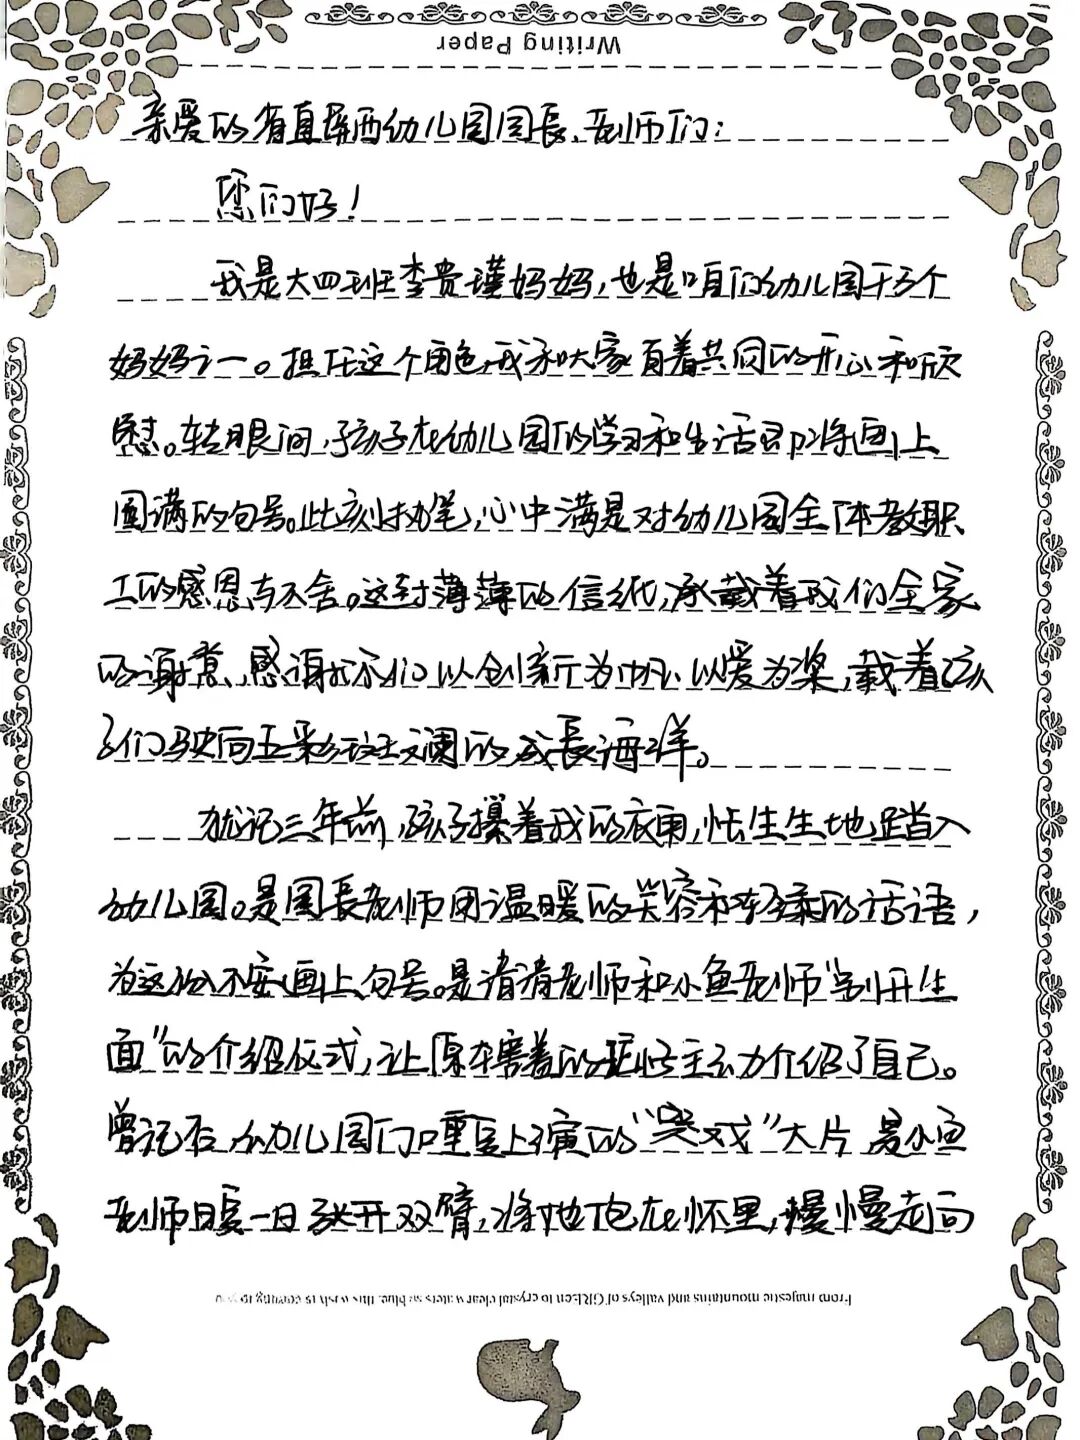 Writing Paper
亲爱的省直屏西幼儿园园長、老师们：
您们好！
我是大四班李贵瑾妈妈，也是咱们幼儿园千百个
妈妈之一。担任这个角色，我和大家有着共同的开心和欣
慰。转眼间，孩子在幼儿园的学习和生活即将画上
圆满的句号。此刻执笔，心中满是对幼儿园全体教职
工的感恩与不舍。这封薄薄的信纸，承载着我们全家
的谢意、感谢你们以创新为帆、以爱为桨，载着孩
子们驶向五彩斑斓的成長海洋。
犹记三年前，孩子攥着我的衣角，怯生生地踏入
幼儿园。是园長老师用温暖的笑容和轻柔的话语，
为这份不安画上句号。是清清老师和小鱼老师“别开生
面”的介绍仪式，让原本害羞的班班主动介绍了自己。
曾记否，幼儿园门口重复上演的“哭戏”大片，是小鱼
老师日复一日张开双臂，将他抱在怀里，慢慢走向
From majestic mountains and valleys of GREen to crystal clear waters so blue, this wish is coming to you